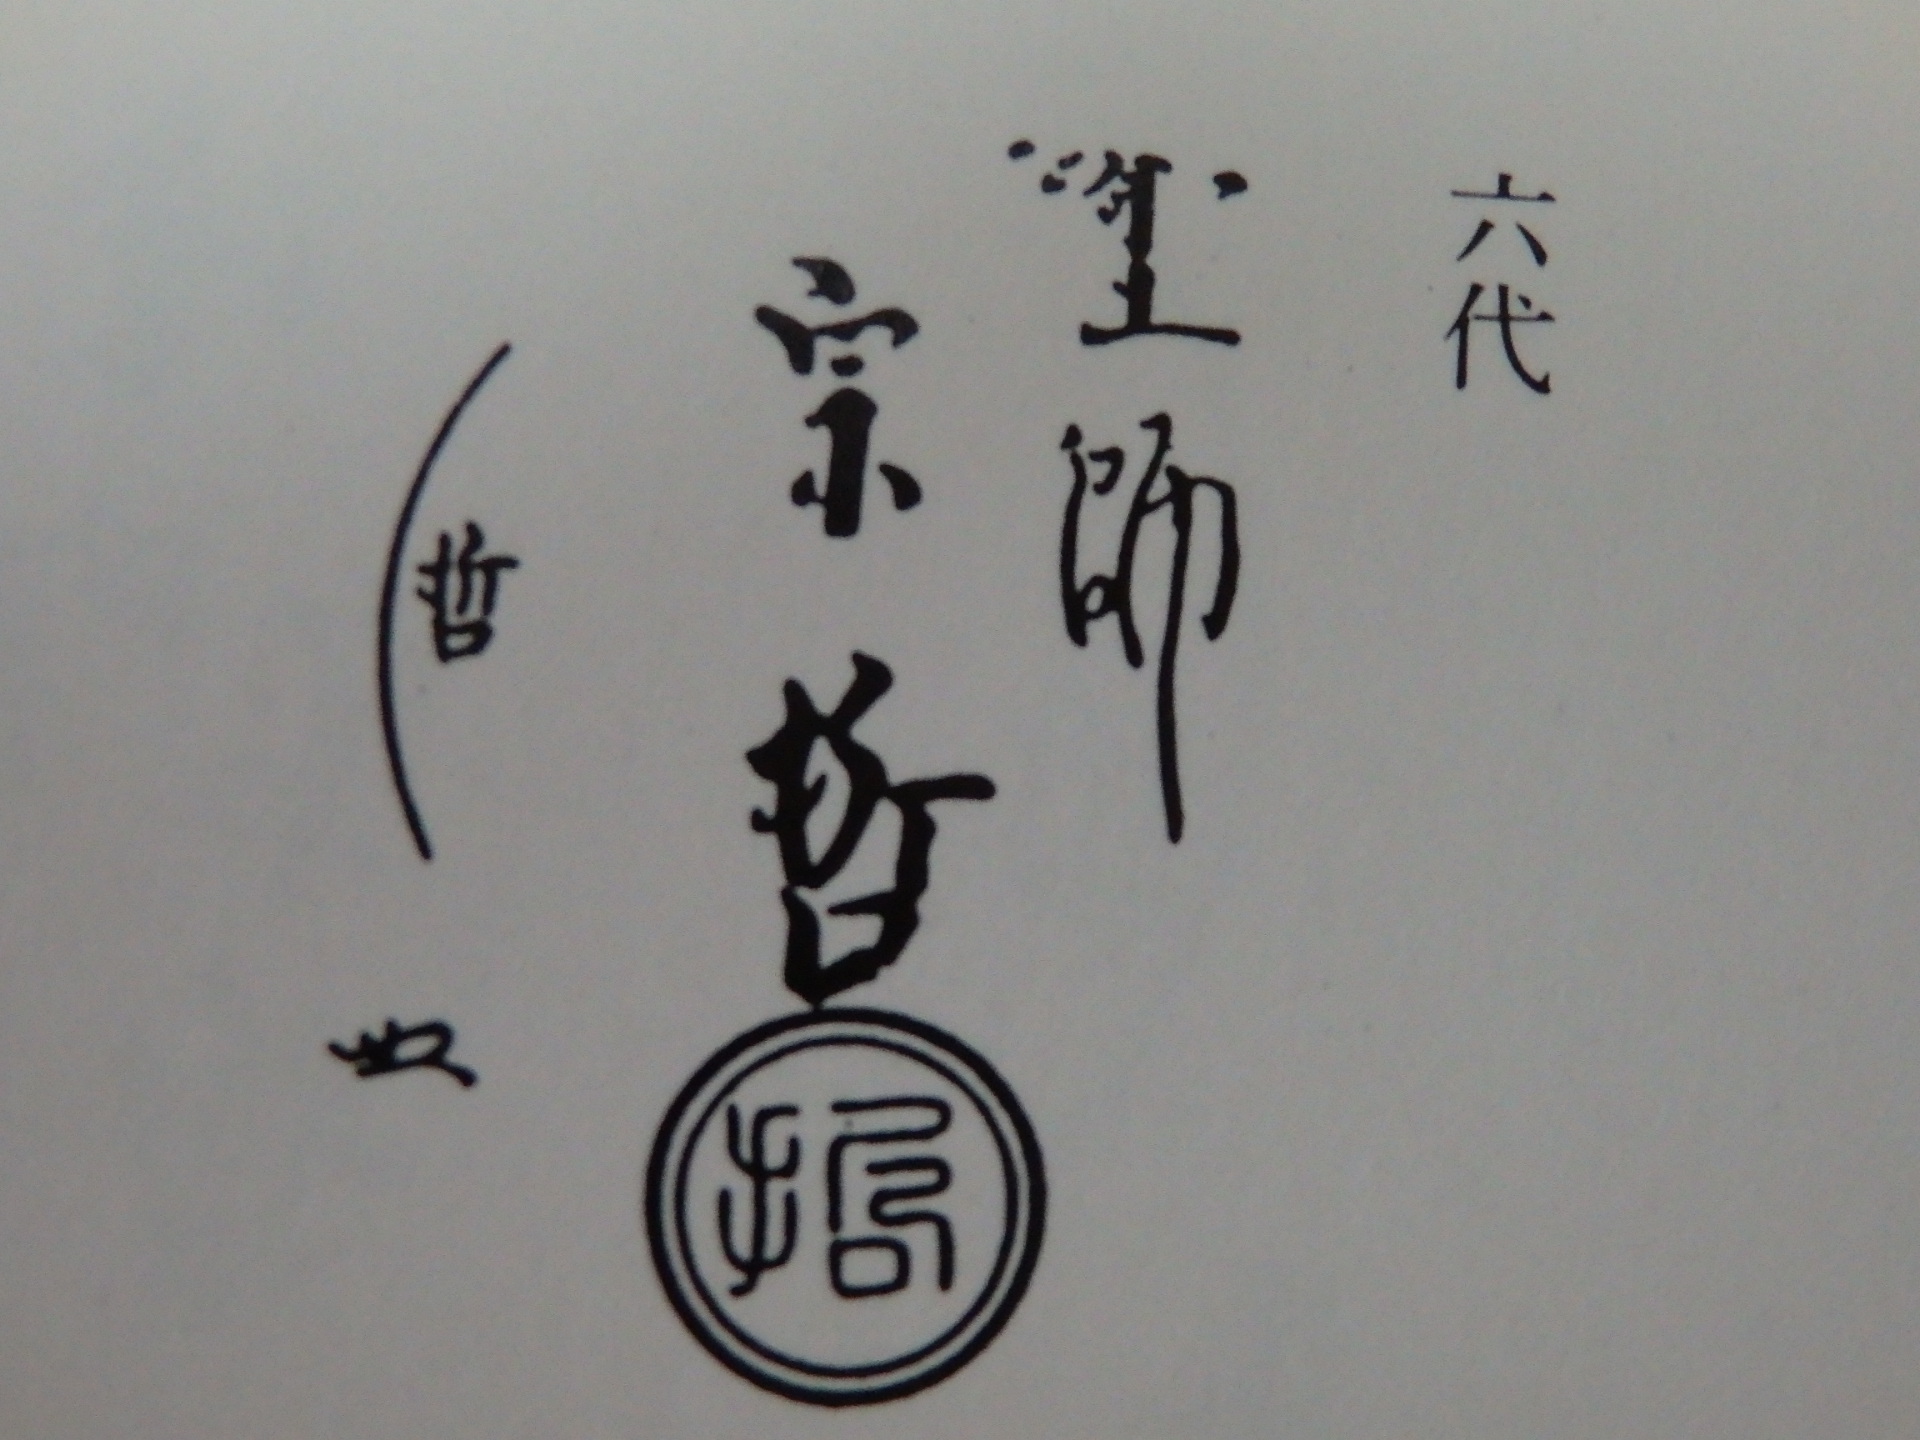 六代
塗師
宗哲
哲
哲